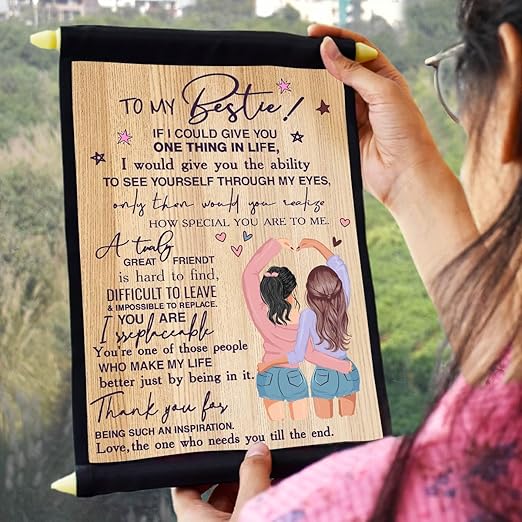 TO MY Bestie!
IF I COULD GIVE YOU
ONE THING IN LIFE,
I would give you the ability
TO SEE YOURSELF THROUGH MY EYES,
only then would you realize
HOW SPECIAL YOU ARE TO ME.
A truly
GREAT FRIENDT
is hard to find,
DIFFICULT TO LEAVE
& IMPOSSIBLE TO REPLACE.
I YOU ARE
Irreplaceable
You're one of those people
WHO MAKE MY LIFE
better just by being in it.
Thank you for
BEING SUCH AN INSPIRATION.
Love, the one who needs you till the end.